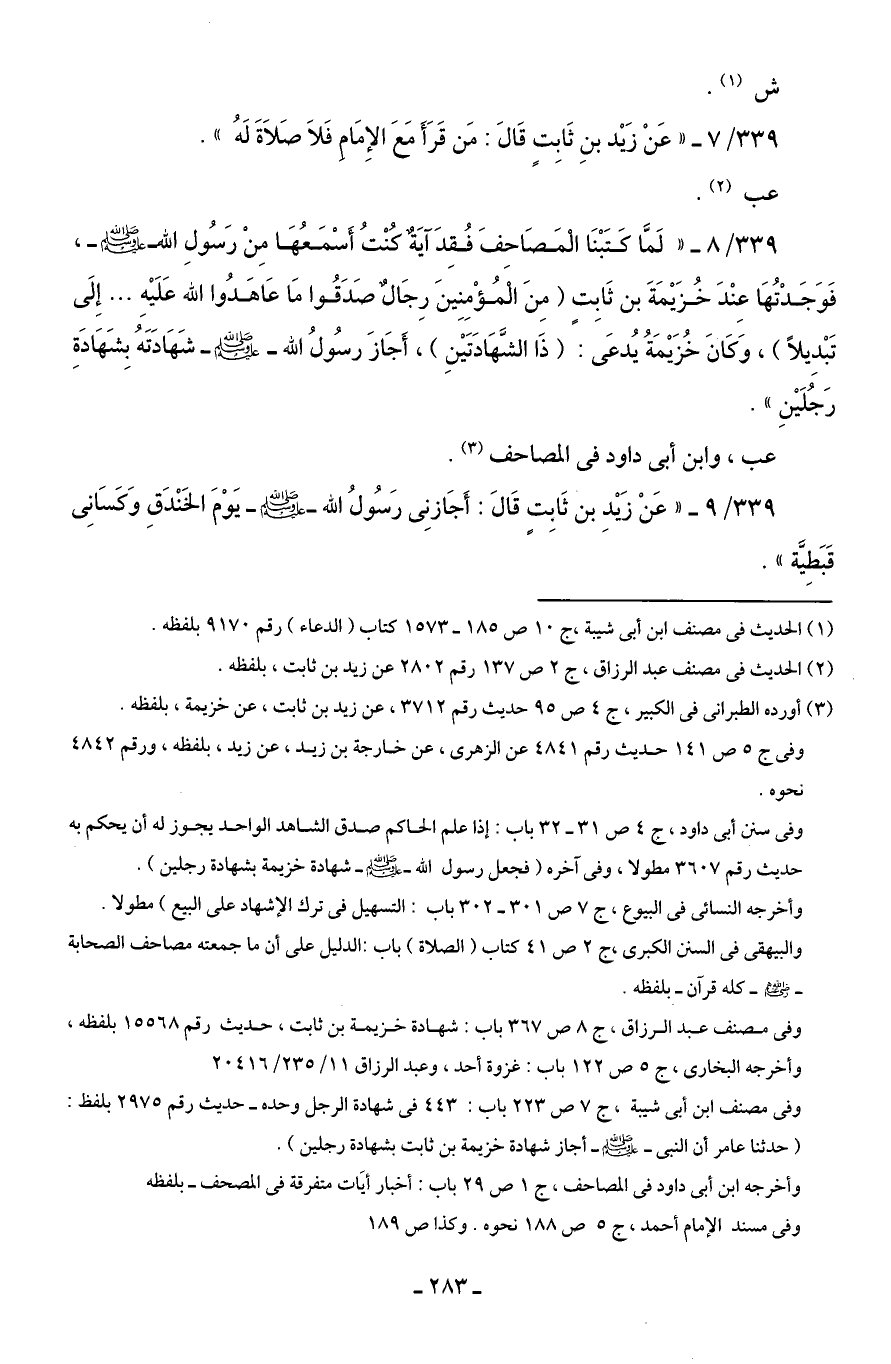 ش (١) .
٣٣٩/ ٧ ـ « عَنْ زَيْد بنِ ثَابِتٍ قَالَ : مَن قَرَأَ مَعَ الإِمَامِ فَلاَ صَلاَةَ لَهُ » .
عب (٢) .
٣٣٩/ ٨ ـ « لَمَّا كَتَبْنَا الْمَصَاحِفَ فُقِدَ آيَةٌ كُنْتُ أَسْمَعُهَا مِنْ رَسُولِ الله ـ ﷺ ـ ،
فَوَجَدْتُهَا عِنْدَ خُزَيْمَةَ بن ثَابِتٍ ( مِنَ الْمُؤْمِنِينَ رِجَالٌ صَدَقُوا مَا عَاهَدُوا الله عَلَيْهِ ... إِلَى
تَبْدِيلاً ) ، وَكَانَ خُزَيْمَةُ يُدعَى : ( ذَا الشَّهَادَتَيْنِ ) ، أَجَازَ رسُولُ الله ـ ﷺ ـ شَهَادَتَهُ بِشَهَادَةِ
رَجُلَيْنِ » .
عب ، وابن أبى داود فى المصاحف (٣) .
٣٣٩/ ٩ ـ « عَنْ زَيْدِ بن ثَابِتٍ قَالَ : أَجَازنِى رَسُولُ الله ـ ﷺ ـ يَوْمَ الخَنْدَقِ وَكَسَانِى
قَبَطِيَّة » .
(١) الحديث فى مصنف ابن أبى شيبة ،ج ١٠ ص ١٨٥ ـ ١٥٧٣ كتاب ( الدعاء ) رقم ٩١٧٠ بلفظه .
(٢) الحديث فى مصنف عبد الرزاق ، ج ٢ ص ١٣٧ رقم ٢٨٠٢ عن زيد بن ثابت ، بلفظه .
(٣) أورده الطبرانى فى الكبير ، ج ٤ ص ٩٥ حديث رقم ٣٧١٢ ، عن زيد بن ثابت ، عن خزيمة ، بلفظه .
وفى ج ٥ ص ١٤١ حديث رقم ٤٨٤١ عن الزهرى ، عن خارجة بن زيد ، عن زيد ، بلفظه ، ورقم ٤٨٤٢
نحوه .
وفى سنن أبى داود ، ج ٤ ص ٣١ ـ ٣٢ باب : إذا علم الحاكم صدق الشاهد الواحد يجوز له أن يحكم به
حديث رقم ٣٦٠٧ مطولا ، وفى آخره ( فجعل رسول الله ـ ﷺ ـ شهادة خزيمة بشهادة رجلين ) .
وأخرجه النسائى فى البيوع ، ج ٧ ص ٣٠١ ـ ٣٠٢ باب : التسهيل فى ترك الإشهاد على البيع ) مطولا .
والبيهقى فى السنن الكبرى ،ج ٢ ص ٤١ كتاب ( الصلاة ) باب :الدليل على أن ما جمعته مصاحف الصحابة
ـ ـ كله قرآن ـ بلفظه .
وفى مصنف عبد الرزاق ، ج ٨ ص ٣٦٧ باب : شهادة خزيمة بن ثابت ، حديث رقم ١٥٥٦٨ بلفظه ،
وأخرجه البخارى ، ج ٥ ص ١٢٢ باب : غزوة أحد ، وعبد الرزاق ١١/ ٢٣٥/ ٢٠٤١٦
وفى مصنف ابن أبى شيبة ، ج ٧ ص ٢٢٣ باب : ٤٤٣ فى شهادة الرجل وحده ـ حديث رقم ٢٩٧٥ بلفظ :
( حدثنا عامر أن النبى ـ ﷺ ـ أجاز شهادة خزيمة بن ثابت بشهادة رجلين ) .
وأخرجه ابن أبى داود فى المصاحف ، ج ١ ص ٢٩ باب : أخبار أيَات متفرقة فى المصحف ـ بلفظه
وفى مسند الإمام أحمد ، ج ٥ ص ١٨٨ نحوه . وكذا ص ١٨٩
ـ ٢٨٣ ـ